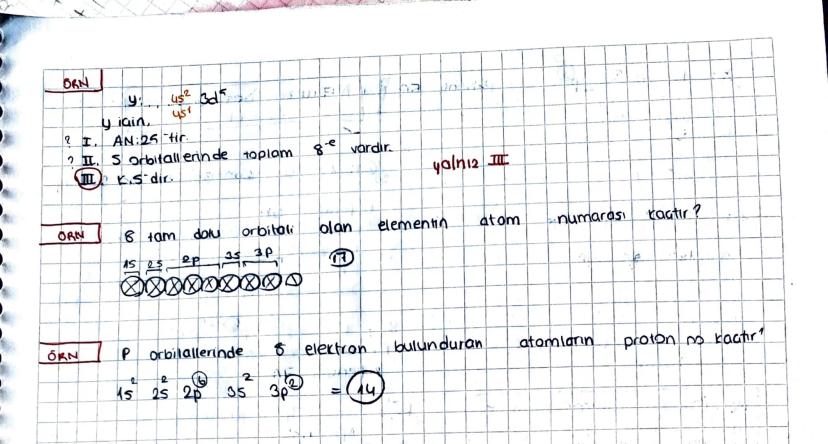 ÖRN
y: ... 4s² 3d⁵
4s¹
y için,
? I. AN:25'tir.
? II. S orbitallerinde toplam 8⁻e vardır.
III. K.S'dir.
yalnız III
ÖRN 8 tam dolu orbitali olan elementin atom numarası kaçtır?
1S 2S 2P 3S 3P
17
ÖRN P orbitallerinde 8 elektron bulunduran atomların proton no kaçtır?
1S² 2S² 2P⁶ 3S² 3P² = 14